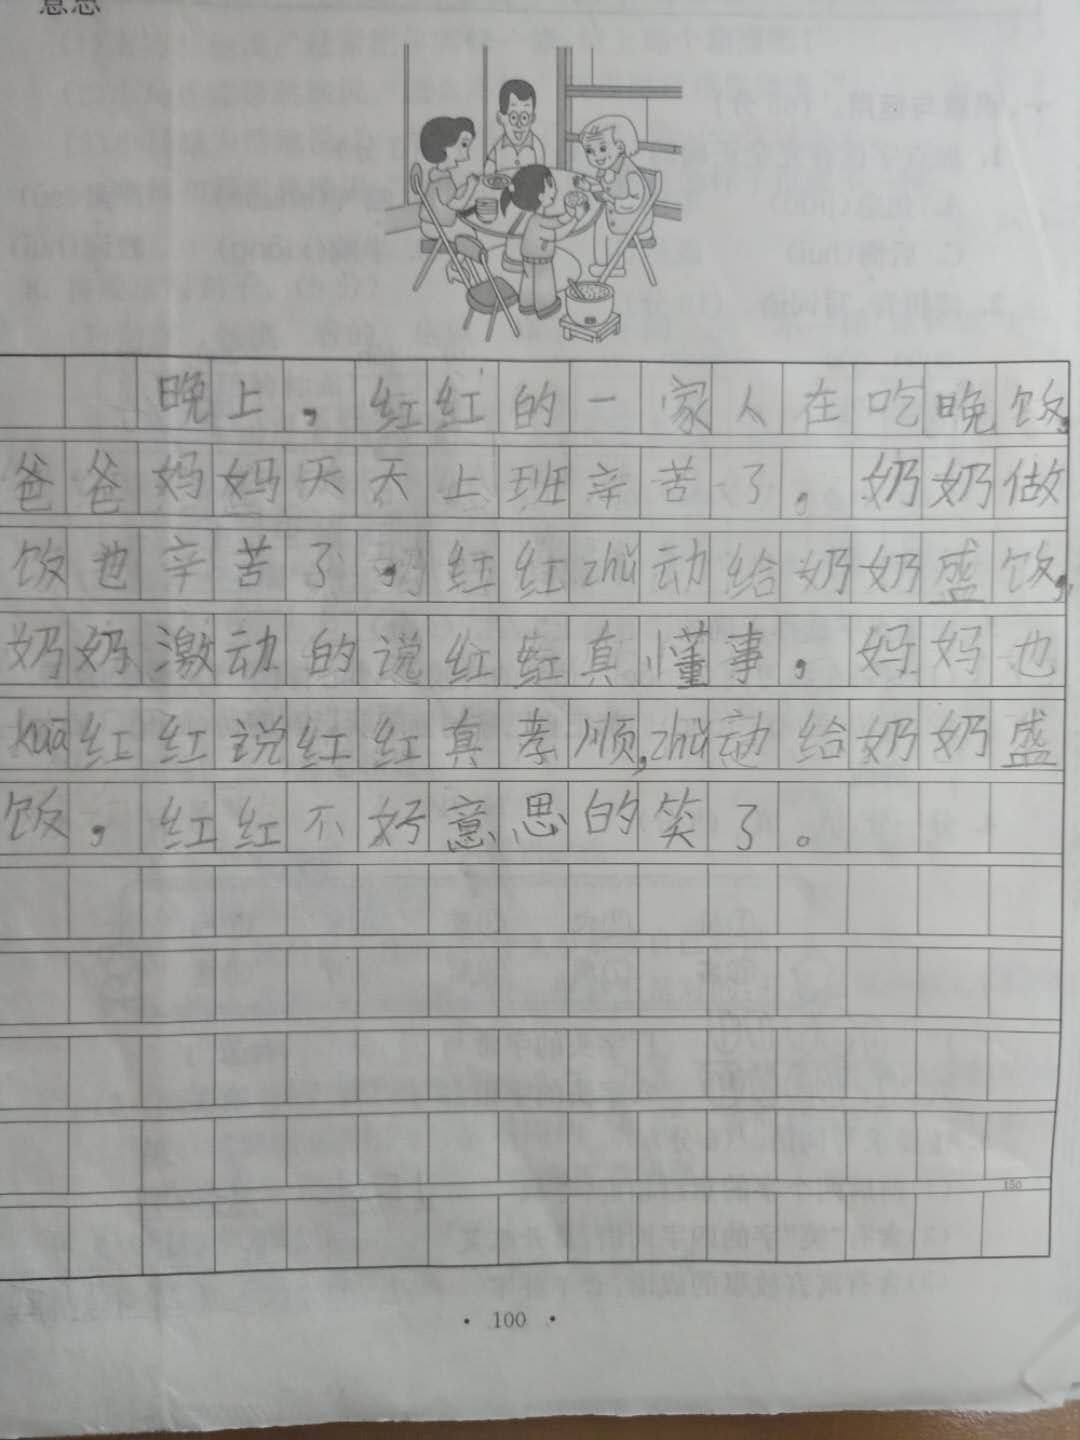 意思
晚上，红红的一家人在吃晚饭，
爸爸妈妈天天上班辛苦了，奶奶做
饭也辛苦了，红红zhǔ动给奶奶盛饭，
奶奶激动的说红红真懂事，妈妈也
kuā红红说红红真孝顺，zhǔ动给奶奶盛
饭，红红不好意思的笑了。
150
· 100 ·